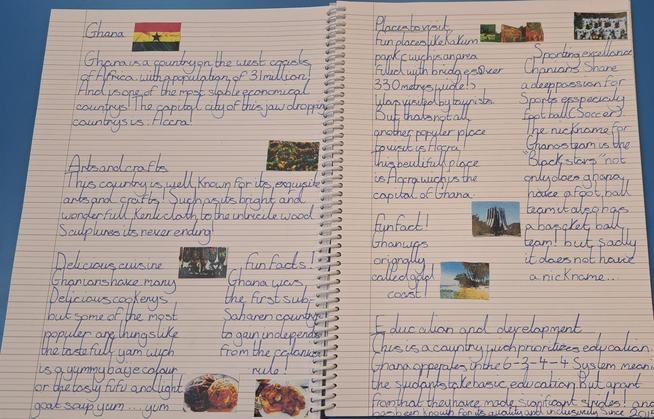 Ghana
Ghana is a country on the west coasts
of Africa. with a population of 31 million!
And is one of the most stable economical
countrys! The capital city of this jaw dropping
countrys is: Accra!
Arts and crafts
This country is well known for its exquisite
arts and crafts! Such as its bright and
wonderfull Kente cloth to the intricate wood
Sculptures its never ending!
Delicious cuisine
Ghanians have many
Delicious cookerys
but some of the most
populer are things like
the tastefull yam wich
is a yummy baye colour
or the tasty fufu and light
goat soup yum... yum
fun facts!
Ghana was
the first sub-
Saharen country
to gain independ
from the colonial
rule!
Places to visit
Fun places like Kakum
park (wich is an area
filled with bridges over
330 metres wide!)
Was visited by tourists.
But thats not all
another populer place
to visit is Accra!
this beutiful place
is Accra wich is the
capital of Ghana.
fun fact!
Ghana was
orignally
called gold
coast
Sporting excellence
Ghanians Share
a deep passion for
Sports especially
football (Soccer).
The nickname for
Ghanas team is the
"Black stars" not
only does ghana
have a foot ball
team it also has
a basket ball
team! but sadly
it does not have
a nickname...
Education and development
This is a country wich prioritizes education.
Ghana opperates in the 6-3-4-4 System meani
the sudants take basic education but apart
from that they have made significant strides! and
has been known for its quality and inclusivity since